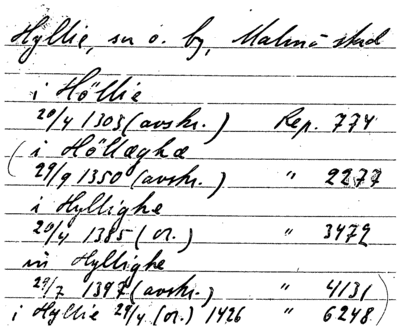 Hyllie, sn o. by, Malmö stad
i Höllie
20/4 1303 (avskr.) Rep. 774
( i Höllæghæ
29/9 1350 (avskr.) " 2277
i Hyllighe
20/4 1385 (or.) " 3472
in Hyllighe
29/7 1397 (avskr.) " 4131
i Hyllie 29/4 (or.) 1426 " 6248 )